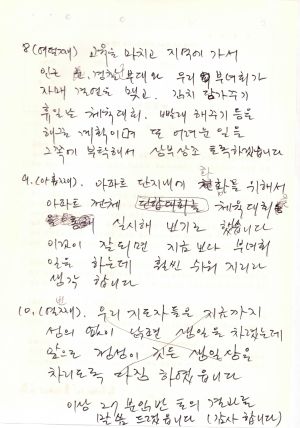 8(여덟째) 교육을 마치고 지역에 가서
인근 경찰 부대와 우리 부녀회가
자매 결연을 맺고, 김치 담가주기
휴일날 체육대회. 빨래 해주기 등을
해주는 계획이며 또 어려운 일을
그쪽에 부탁해서 상부상조 토록하겠습니다
9. (아홉째). 아파트 단지내에 화합을 위해서
아파트 전체 단합대회를 체육대회
실시해 보기로 했습니다
이것이 잘되면 지금보다 부녀회
일을 하는데 훨씬 쉬워 지리라
생각 합니다
10. (열째). 우리 지도자들은 지금까지
선의 없이 생일을 차렸는데
앞으로 전선이 생일상을
차리도록 다짐 하였읍니다
이상 27 분임반 토의 결과를
말씀 드렸습니다 (감사합니다)